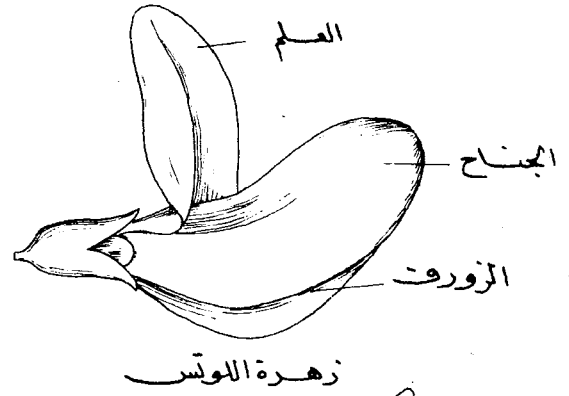 العلم
الجناح
الزورق
زهرة اللوتس